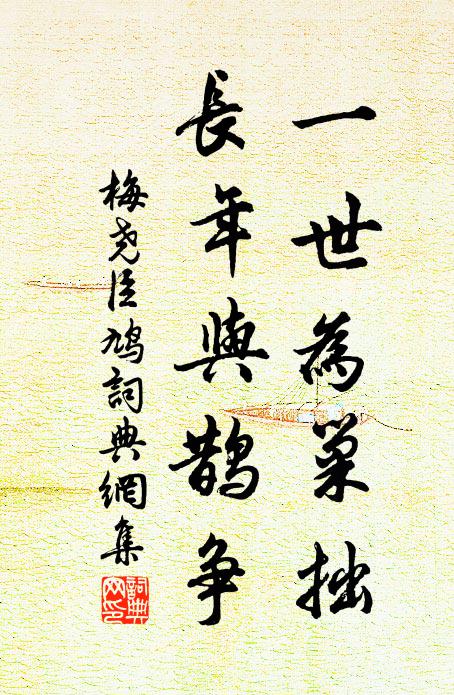 一世為巢拙
長年與鵲争
梅尧臣鳩詞典網集
詞典
网印